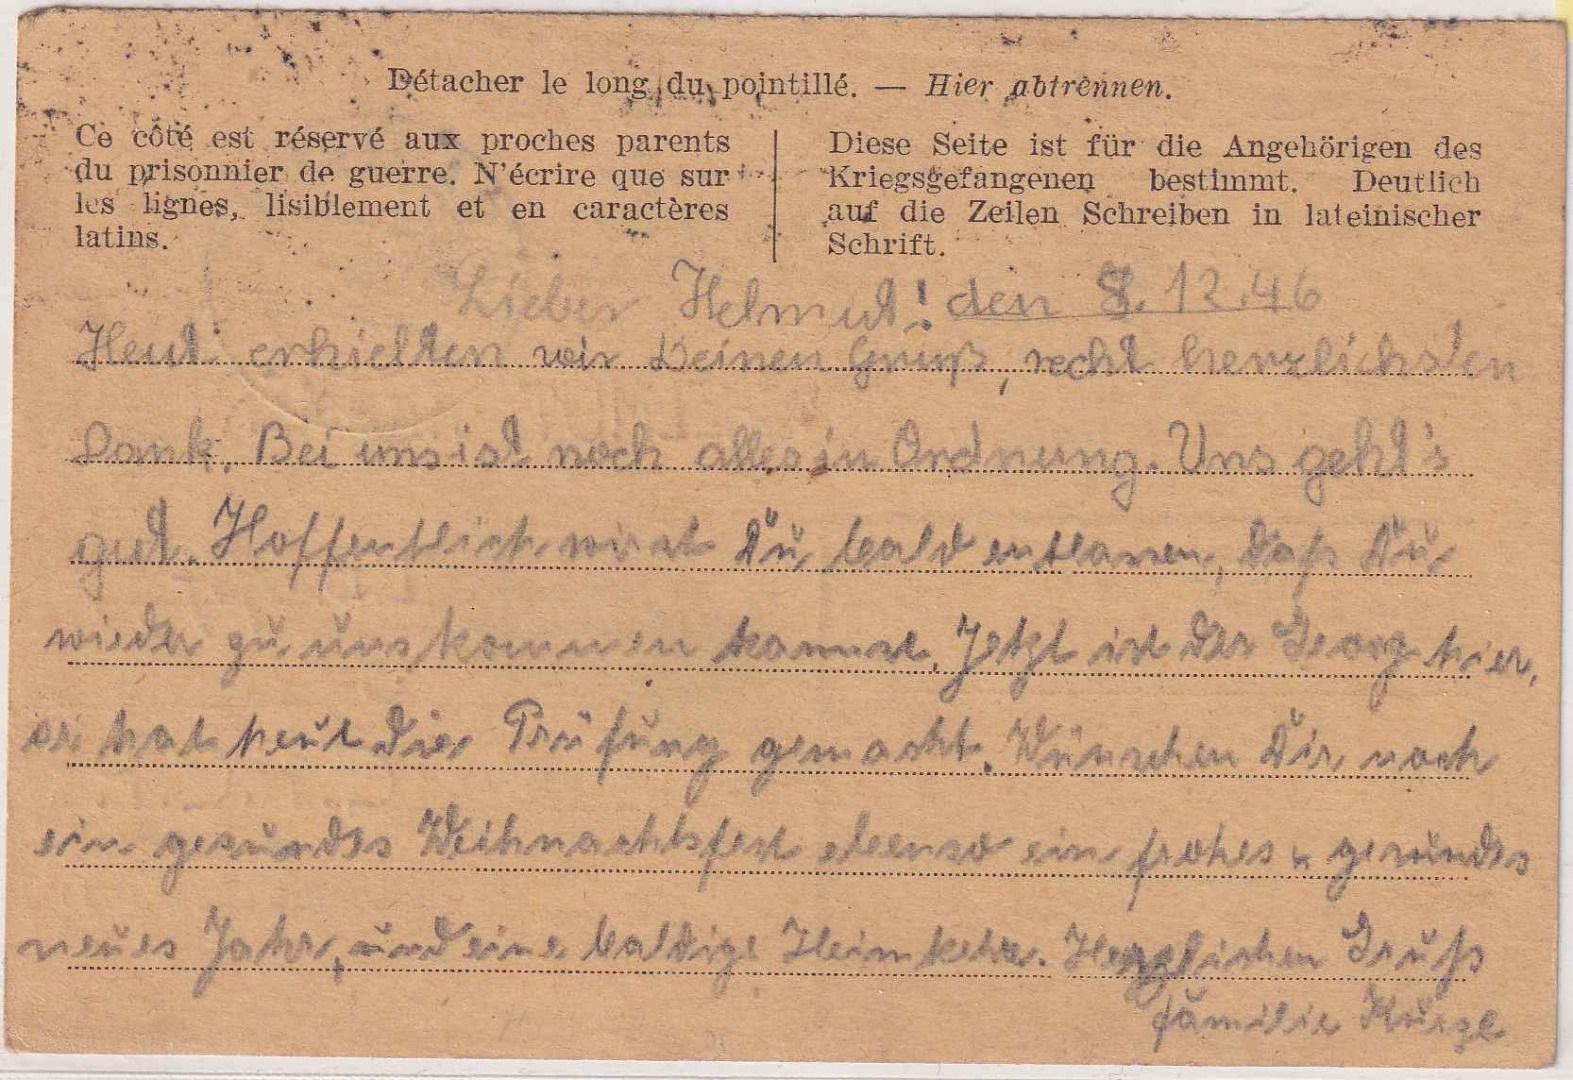 Détacher le long du pointillé. — Hier abtrennen.
Ce côté est réservé aux proches parents
du prisonnier de guerre. N'écrire que sur
les lignes, lisiblement et en caractères
latins.
Diese Seite ist für die Angehörigen des
Kriegsgefangenen bestimmt. Deutlich
auf die Zeilen Schreiben in lateinischer
Schrift.
Lieber Helmut! den 8.12.46
Heut erhielten wir Deinen Gruß, recht herzlichsten
Dank. Bei uns ist noch alles in Ordnung. Uns geht's
gut. Hoffentlich wirst Du bald entlassen, daß Du
wieder zu uns kommen kannst. Jetzt ist der Georg hier,
er hat heut die Prüfung gemacht. Wünschen Dir noch
ein gesundes Weihnachtsfest ebenso ein frohes u gesundes
neues Jahr, und eine baldige Heimkehr. Herzlichen Gruß
Familie